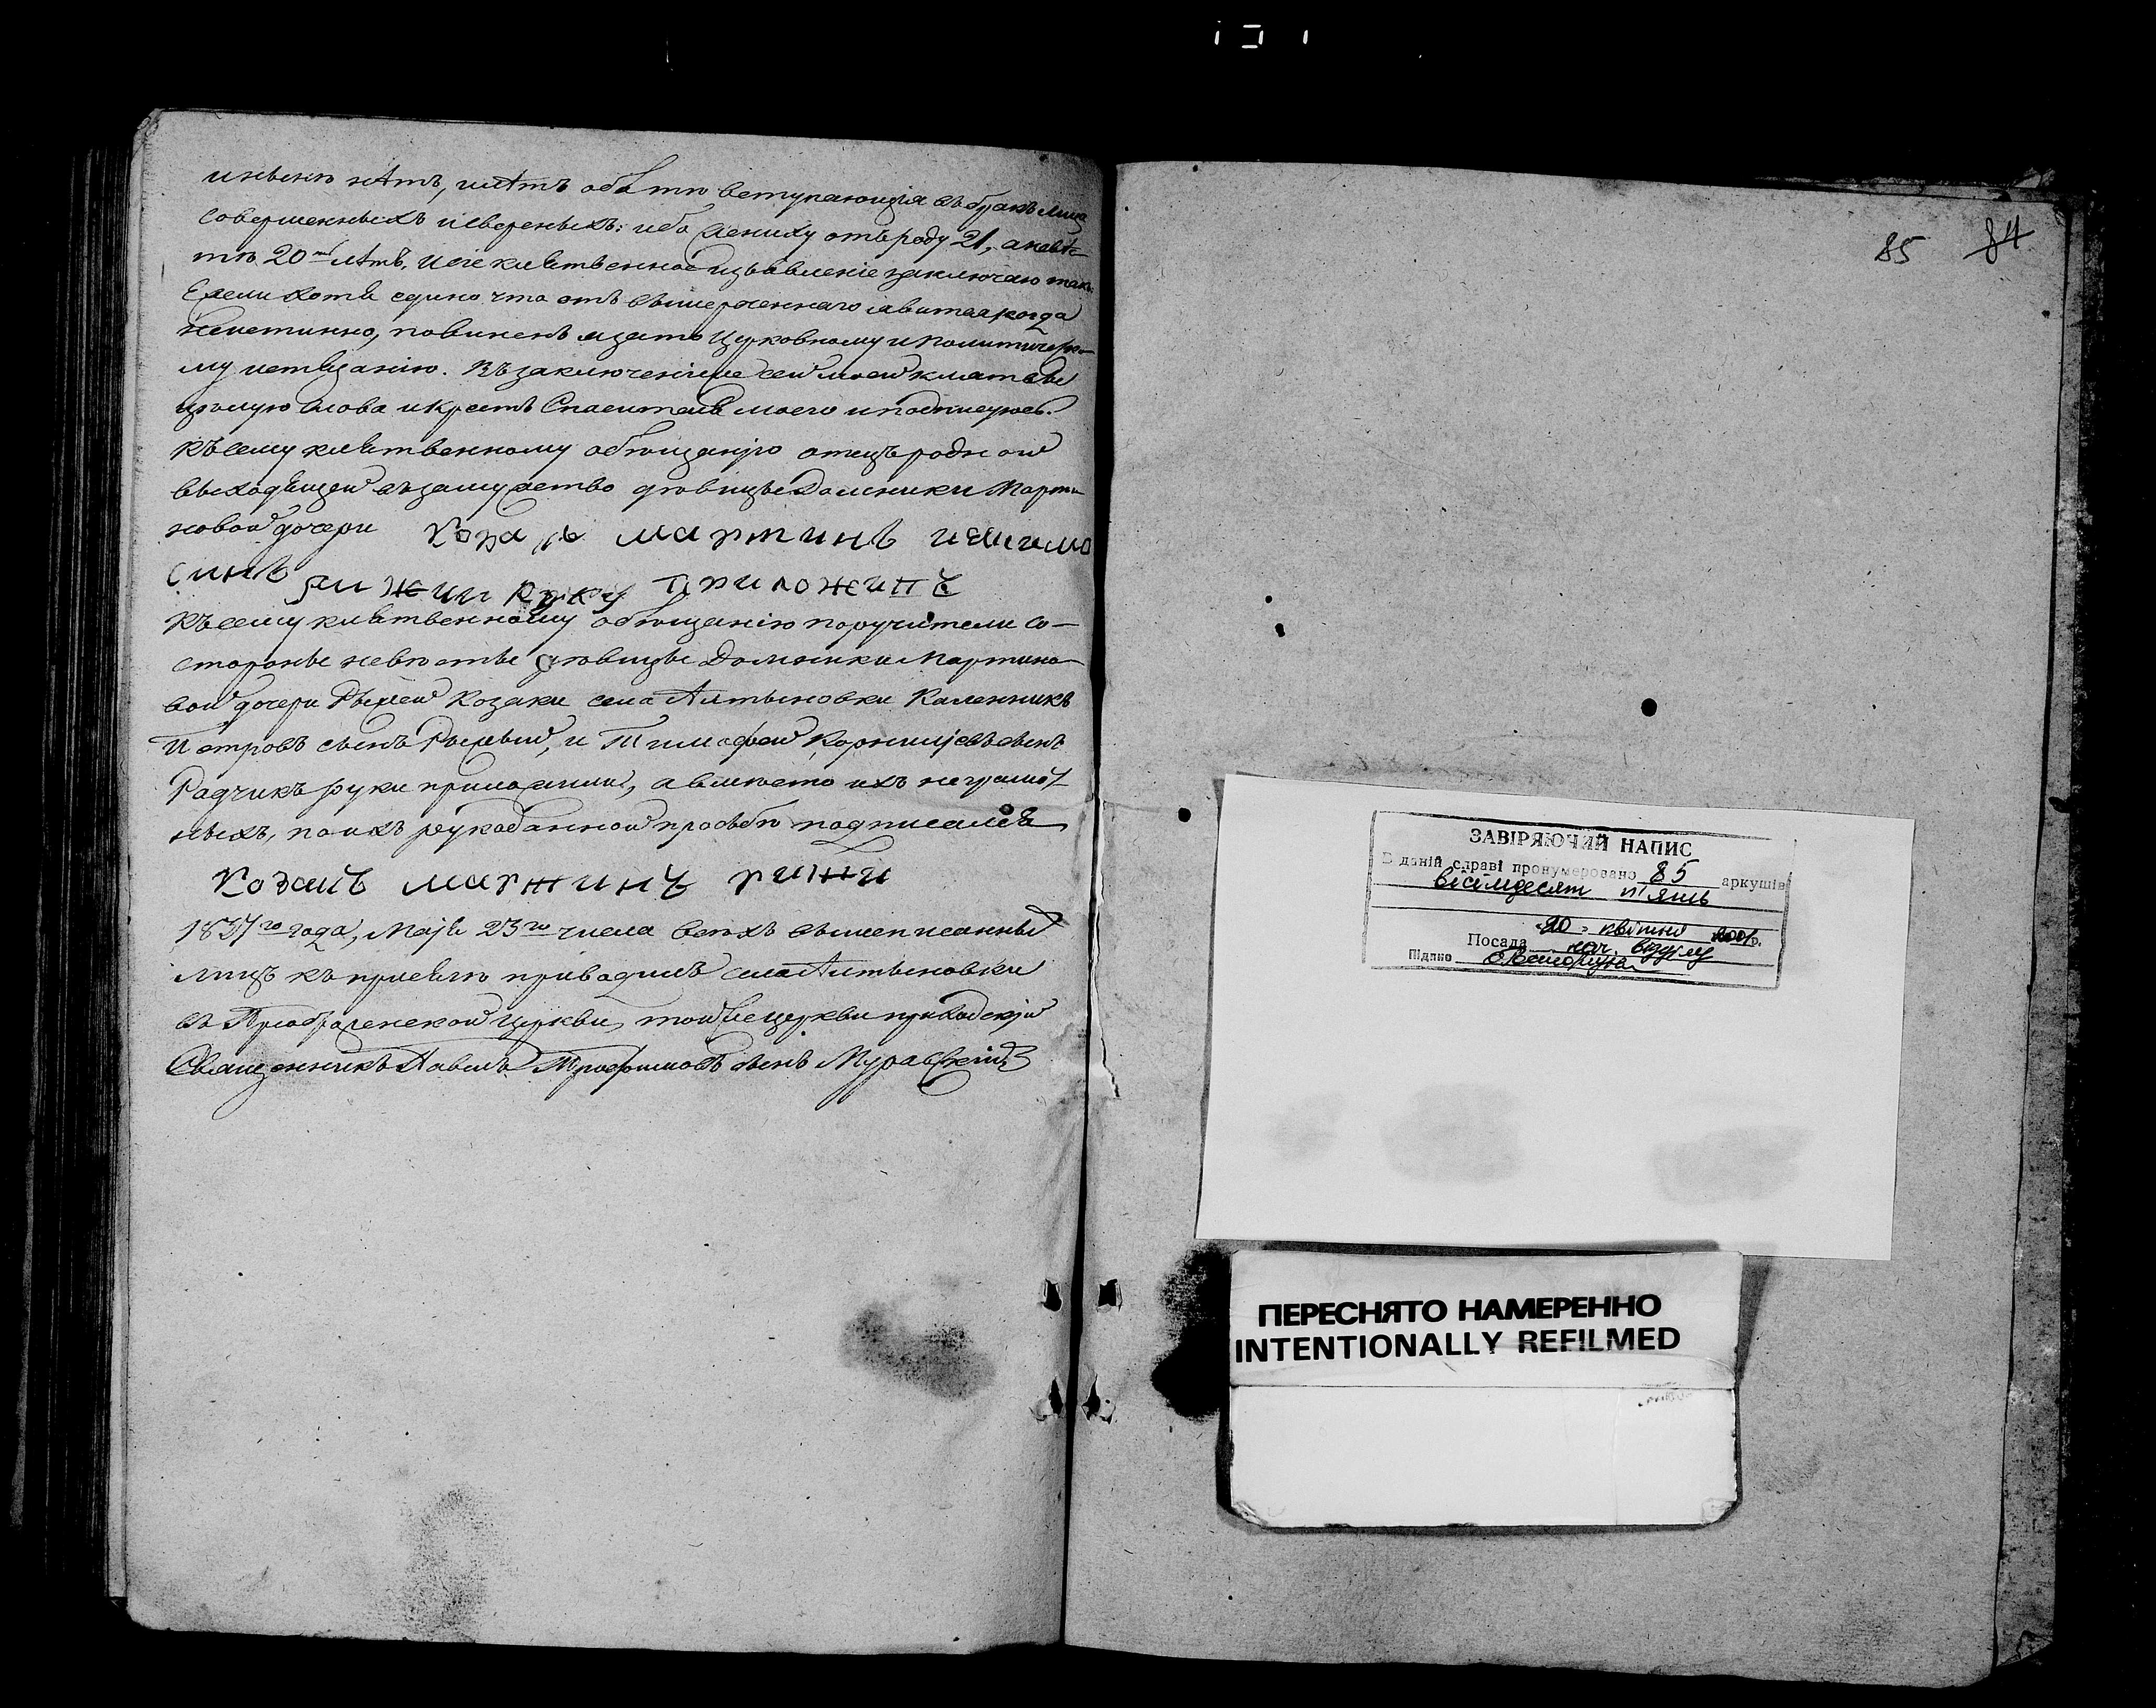 нѣтъ, лѣтъ обѣ вступающія въ бракъ лица
совершенныхъ и ибо жениху отъ роду 21, а невѣс-
тѣ 20ти лѣтъ. и сіе клятвенное изъявленіе заключаю такъ:
Ежели хотя едино что отъ вышереченнаго явится когда
неистинно, повиненъ Церковному и политическо-
му истязанію. Въ заключеніе же сей моей клятвы
цѣлую слова и крестъ Спасителя моего и подписуюсь.
Къ сему клятвенному обѣщанію отецъ родной
выходящей въ замужество дѣвицы Домники Марти-
новой дочери Козакъ мартинъ
синъ рижий руку приложивъ
Къ сему клятвенному обѣщанію поручители со-
стороны невѣсты дѣвицы Домники Мартино-
вой дочери Рыжей Козаки села Алтыновки Каленникъ
Петровъ сынъ Рыжый, и Тимофей Корнилiевъ сынъ
Радчикъ руки приложили, а вмѣсто ихъ неграмот-
ныхъ, по ихъ рукоданной прозьбѣ подписался
козакъ мартинъ рижи
1837го года, Маія 23го числа всѣхъ вышеписанныхъ
лицъ къ присягѣ приводилъ села Алтыновки
въ Преображенской церкви, той же церкви приходскій
Священникъ Павелъ Трофимовъ сынъ Муравскій
85 84
ЗАВІРЯЮЧИЙ НАПИС
В даній справі пронумеровано 85 аркушів
вісімдесят п'ять
20 квітня 2001р.
Посада нач. відділу
Підпис
ПЕРЕСНЯТО НАМЕРЕННО
INTENTIONALLY REFILMED